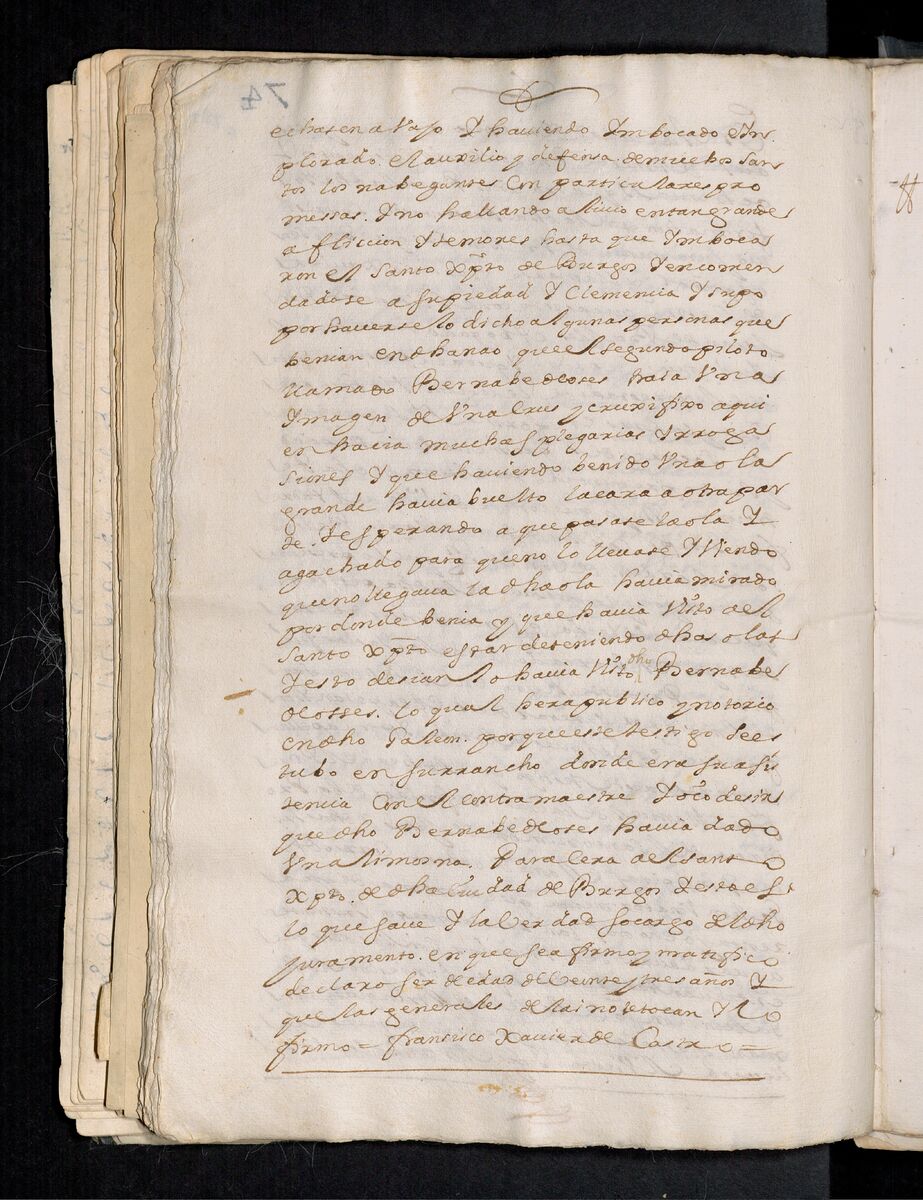 echasen a Vajo Y haviendo Ymbocado e Ym
plorado el auxilio y defensa de muchos San
tos los nabegantes Con particulares pro
messas. Y no hallando alivio en tan grande
afliccion Y temores hasta que Ymboca
ron el Santo Xpto de Burgos Y encomen
dadose a su piedad Y Clemencia Y supo
por haverselo dicho algunas personas que
benian en dha nao que el segundo piloto
llamado Bernabe de oses traia Vna
Ymagen de Vna Crus y cruxifixo a qui
en hacia muchas plegarias Y rroga
siones Y que haviendo benido Vna ola
grande havia buelto la cara a otra par
te. Y esperando a que pasase la ola Y
agachado para que no lo llevase Y Viendo
que no llegava la dha ola havia mirado
por donde benia y que havia Visto a el
Santo Xpto estar deteniendo dhas olas
Y esto desian lo havia Visto dho Bernabe
de osses. lo qual hera publico y notorio
en dho Galeon. porque este testigo se es
tubo en su rrancho donde era su asis
tencia Con el contramaestre Y oyo desir
que dho Bernabe de oses havia dado
Vna limosna. Para Cera a el santo
Xpto. de dha Ciudad de Burgos Y esto es
lo que save Y la Verdad so cargo del dho
juramento. en que se afirmo y ratifico
declaro ser de edad de Veinte y tres años Y
que las generales de la ley no le tocan Y lo
firmo = francisco Xavier de Castro =